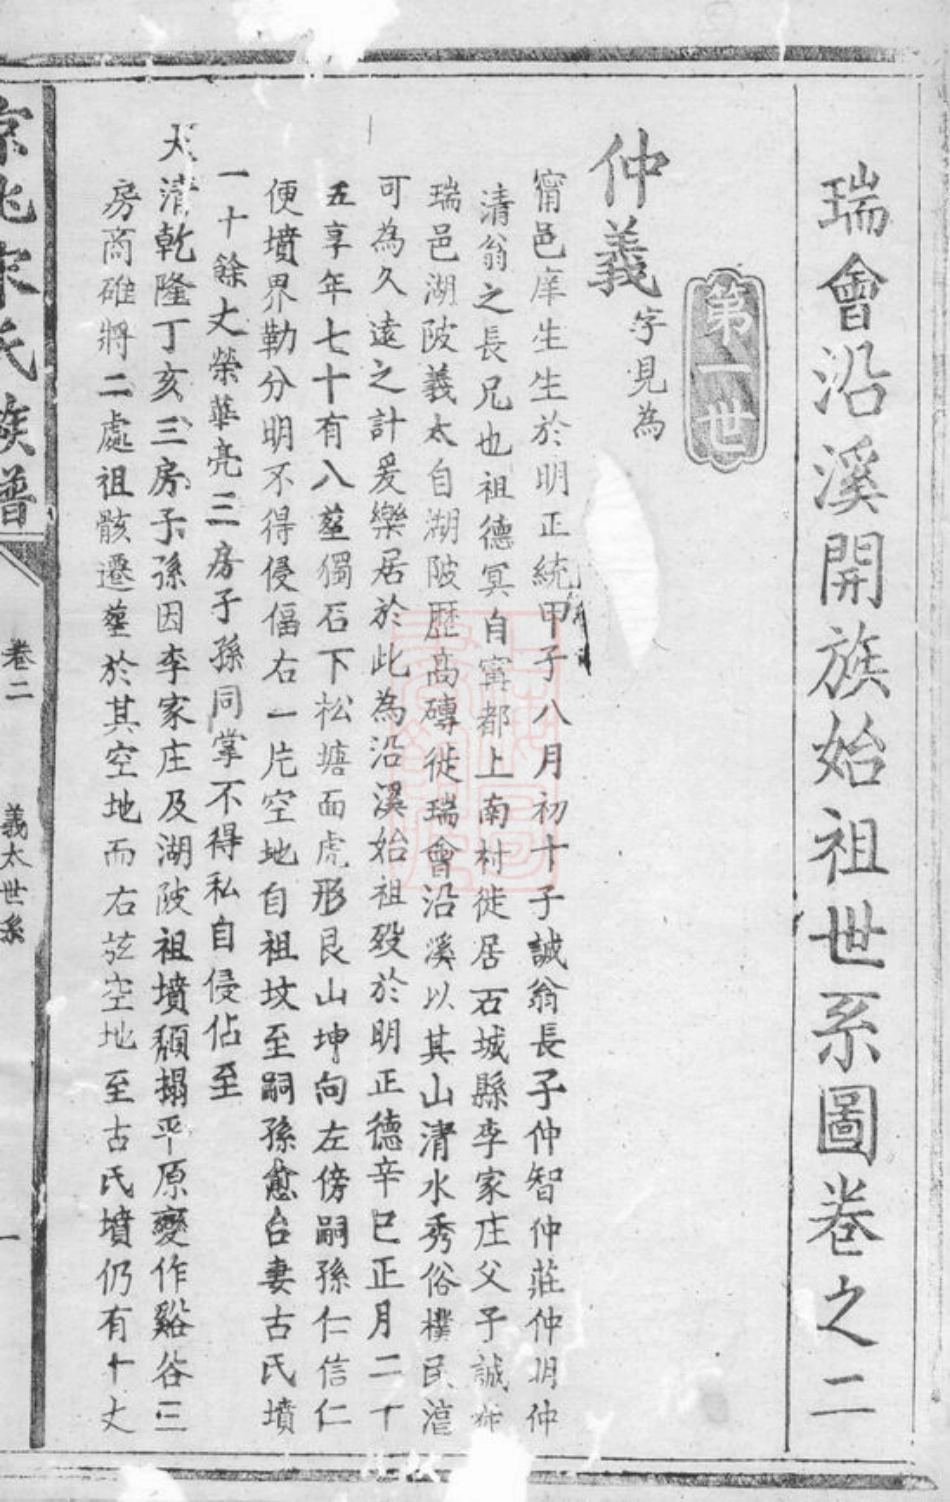 瑞會沿溪開族始祖世系圖卷之二
第一世
仲義字見為
甯邑庠生生於明正統甲子八月初十子誠翁長子仲智仲莊仲明仲
清翁之長兄也祖德冥自寧都上南村徙居石城縣李家庄父子誠
瑞邑湖陂義太自湖陂歷高磚徙瑞會沿溪以其山清水秀俗樸民湻
可為久遠之計爰樂居於此為沿溪始祖歿於明正德辛巳正月二十
五享年七十有八塟獨石下松塘面虎形艮山坤向左傍嗣孫仁信仁
便墳界勒分明不得侵偪右一片空地自祖坟至嗣孫愈台妻古氏墳
一十餘丈榮華亮三房子孫同掌不得私自侵佔至
大清乾隆丁亥三房子孫因李家庄及湖陂祖墳頹搨平原變作谿谷三
房商碓將二處祖骸遷塟於其空地而右弦空地至古氏墳仍有十丈
京兆宋氏族譜
卷二
義太世系
一